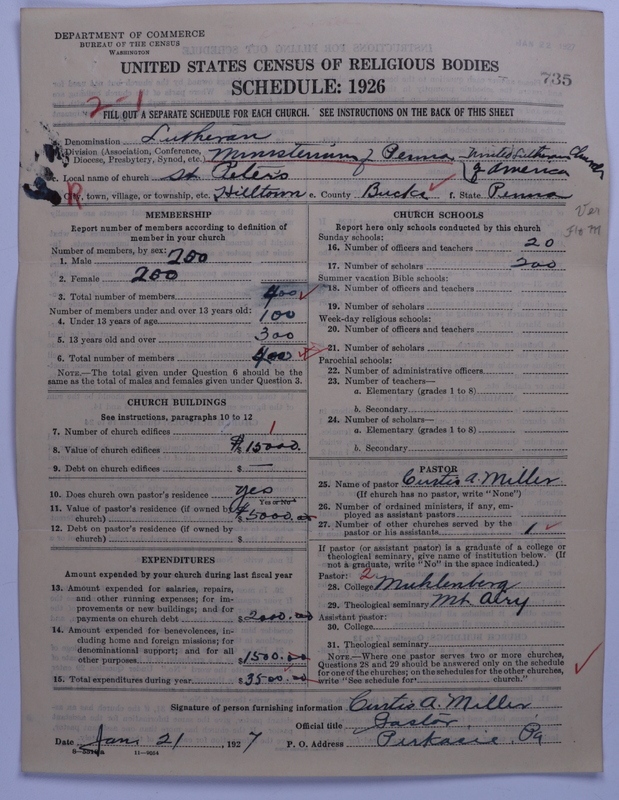 DEPARTMENT OF COMMERCE
BUREAU OF THE CENSUS
WASHINGTON
UNITED STATES CENSUS OF RELIGIOUS BODIES
SCHEDULE: 1926
735
2-1
FILL OUT A SEPARATE SCHEDULE FOR EACH CHURCH. SEE INSTRUCTIONS ON THE BACK OF THIS SHEET
Denomination Lutheran
Division (Association, Conference, Diocese, Presbytery, Synod, etc.) Ministerium of Penna. United Lutheran Church of America
c. Local name of church St. Peter's
R City, town, village, or township, etc. Hilltown e. County Bucks f. State Penna
Ver
MEMBERSHIP
Report number of members according to definition of
member in your church
Number of members, by sex:
1. Male 200
2. Female 200
3. Total number of members 400
Number of members under and over 13 years old:
4. Under 13 years of age 100
5. 13 years old and over 300
6. Total number of members 400
NOTE.—The total given under Question 6 should be
same as the total of males and females given under Question 3.
CHURCH BUILDINGS
See instructions, paragraphs 10 to 12
7. Number of church edifices 1
8. Value of church edifices $ 15000.
9. Debt on church edifices $ —
10. Does church own pastor's residence yes
Yes or No
11. Value of pastor's residence (if owned by
church) $ 5000.00
12. Debt on pastor's residence (if owned by
church) $
EXPENDITURES
Amount expended by your church during last fiscal year
13. Amount expended for salaries, repairs,
and other running expenses; for im-
provements or new buildings; and for
payments on church debt $ 2000.00
14. Amount expended for benevolences, in-
cluding home and foreign missions; for
denominational support; and for all
other purposes $ 1500.00
15. Total expenditures during year $ 3500.00
CHURCH SCHOOLS
Report here only schools conducted by this church
Sunday schools:
16. Number of officers and teachers 20
17. Number of scholars 200
Summer vacation Bible schools:
18. Number of officers and teachers
19. Number of scholars
Week-day religious schools:
20. Number of officers and teachers
21. Number of scholars
Parochial schools:
22. Number of administrative officers
23. Number of teachers—
a. Elementary (grades 1 to 8)
b. Secondary
24. Number of scholars—
a. Elementary (grades 1 to 8)
b. Secondary
PASTOR
25. Name of pastor Curtis A. Miller
(If church has no pastor, write "None")
26. Number of ordained ministers, if any, em-
ployed as assistant pastors
27. Number of other churches served by the
pastor or his assistants 1
If pastor (or assistant pastor) is a graduate of a college or
theological seminary, give name of institution below. (If
not a graduate, write "No" in the space indicated.)
Pastor: 2
28. College Muhlenberg
29. Theological seminary Mt. Airy
Assistant pastor:
30. College
31. Theological seminary
NOTE.—Where one pastor serves two or more churches,
Questions 28 and 29 should be answered only on the schedule
for one of the churches; on the schedules for the other churches,
write "See schedule for church."
Signature of person furnishing information Curtis A. Miller
Official title Pastor
Date Jan 21, 1927 P. O. Address Perkasie, Pa